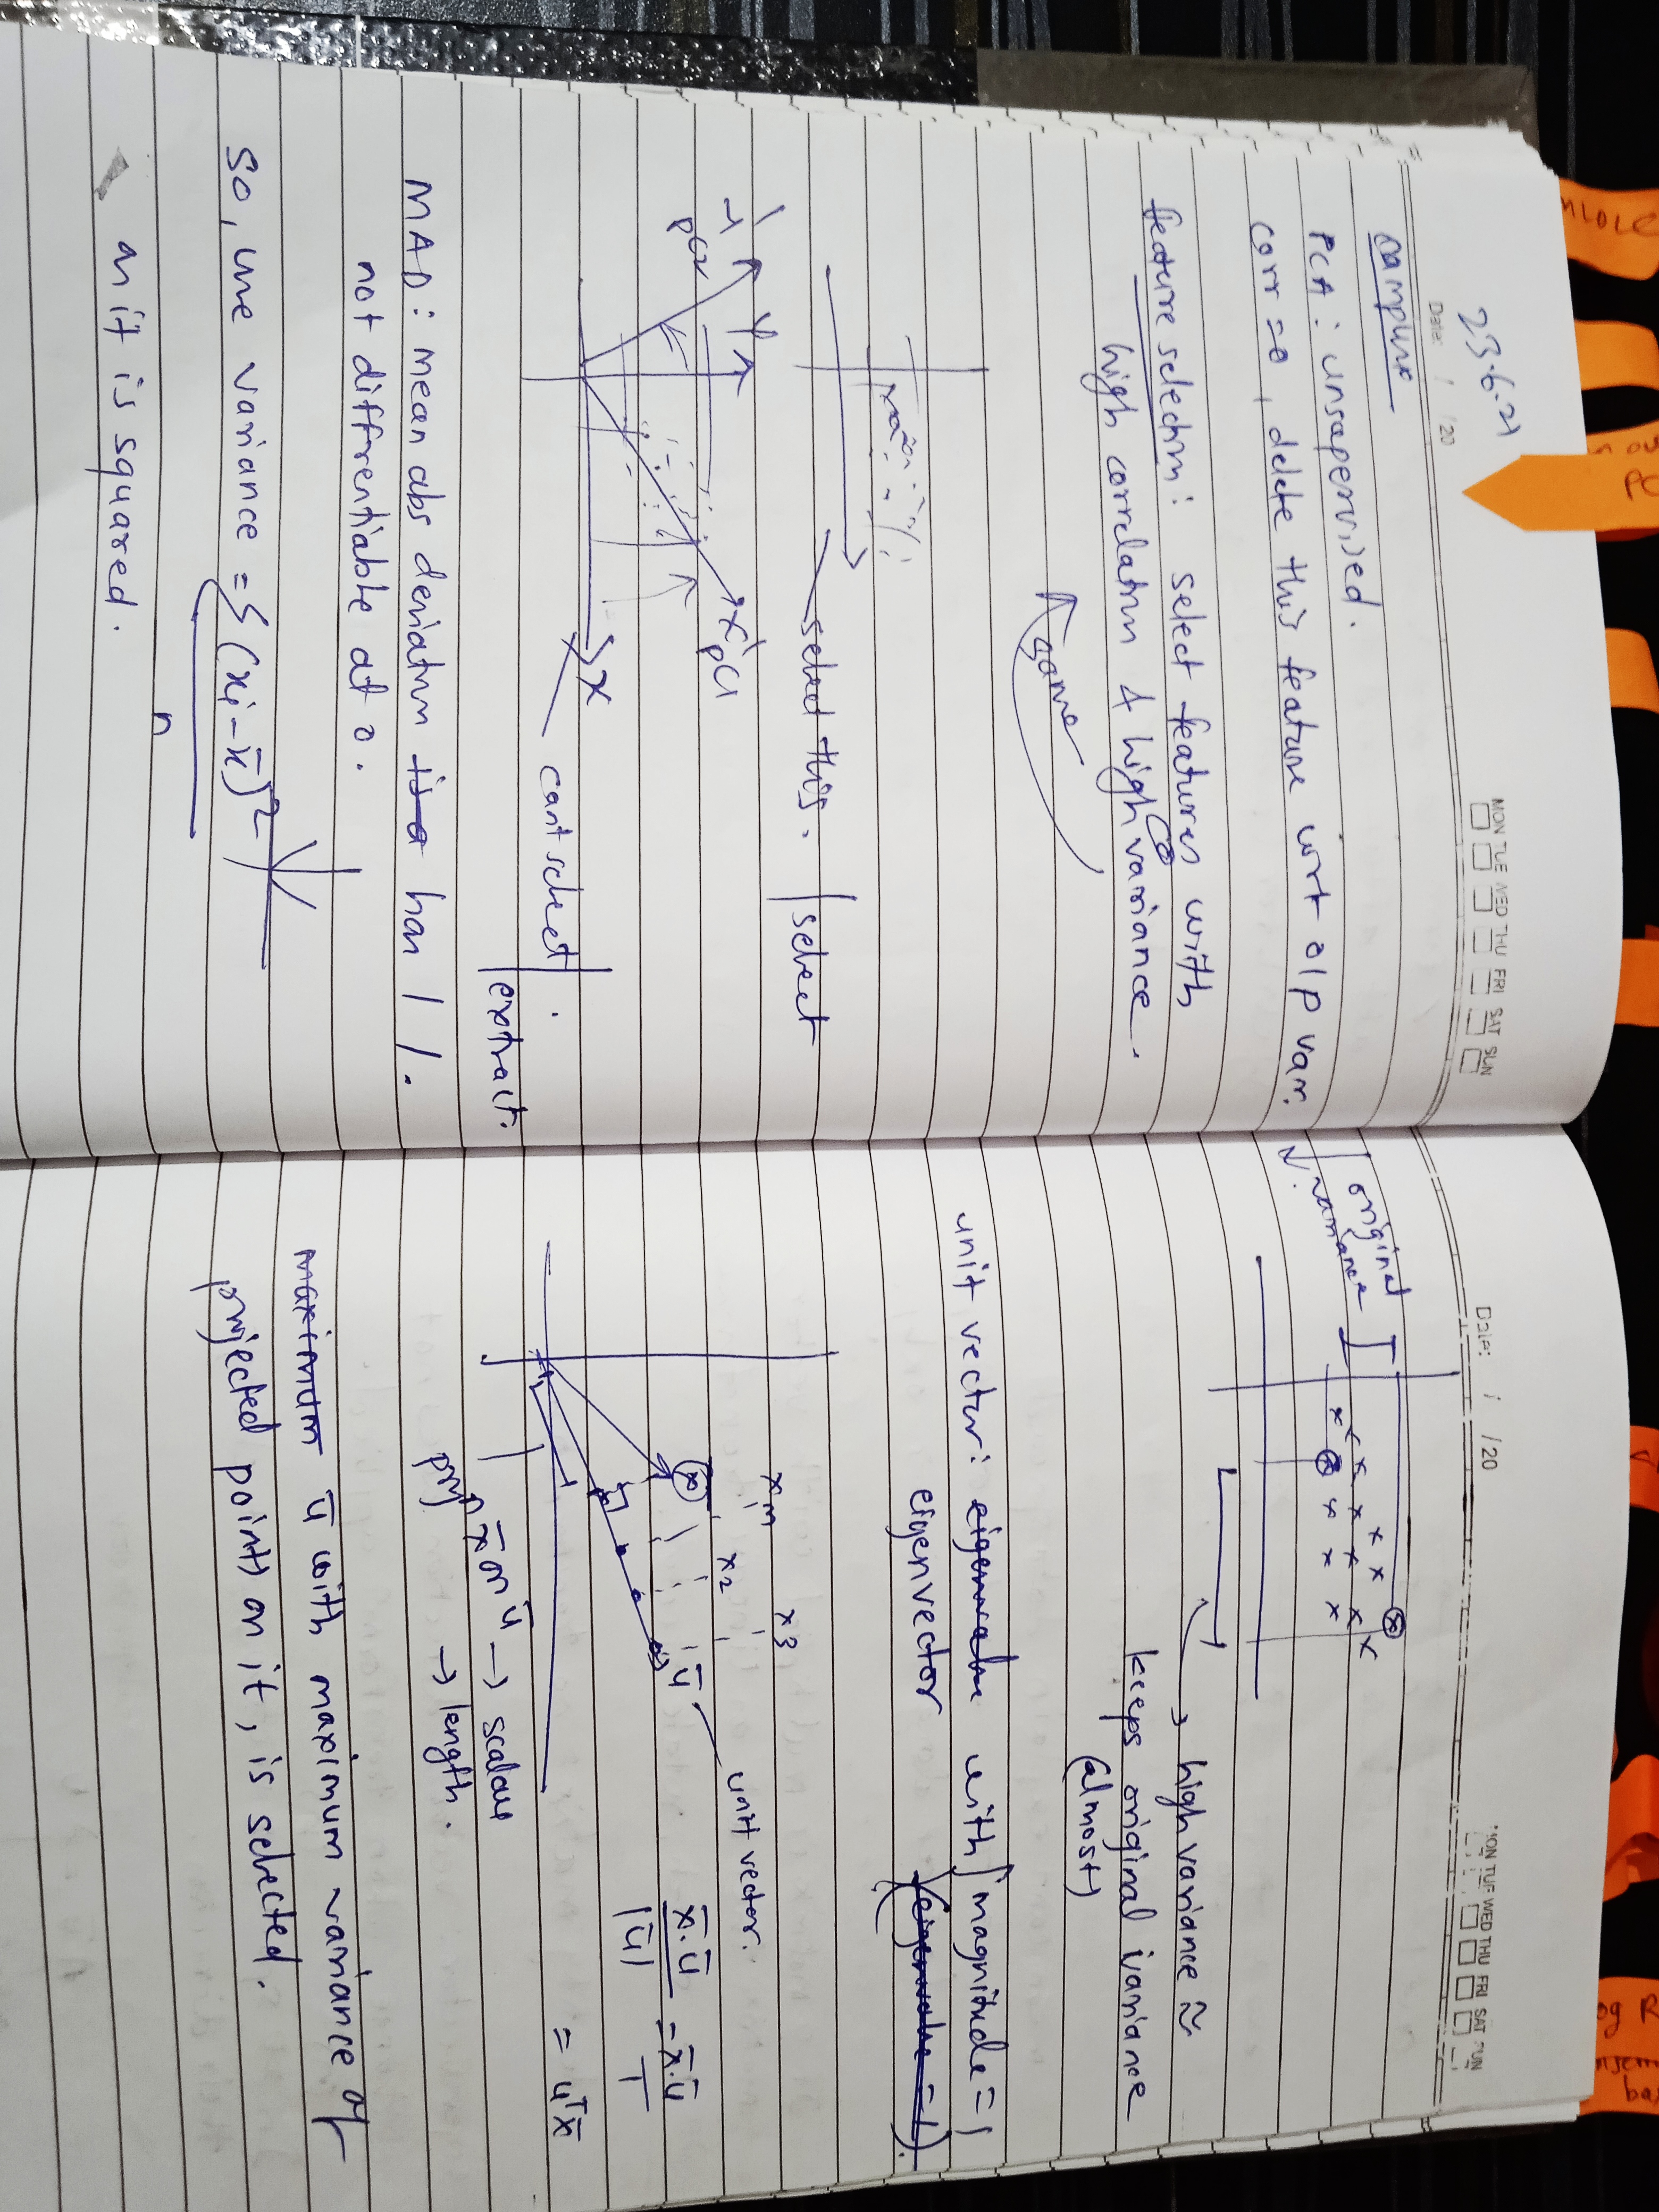 23.6.21
Date: / /20
MON TUE WED THU FRI SAT SUN
campusx
PCA: unsupervised.
corr=0, delete this feature wrt o/p var.
feature selectn: select features with
high correlatn & high variance.
same
select this.
select
y
y'
pc2
x'
pc1
x
can't select.
extract.
MAD: mean abs deviatn is a has | |.
not diffrentiable at 0.
So, use variance = Σ(xi - x̄)²
n
as it is squared.
Date: / /20
MON TUE WED THU FRI SAT SUN
original
variance
→ high variance ≈
keeps original variance
(almost)
unit vector: eigenvalue with magnitude = 1
eigenvector (eigenvalue = 1).
xm
x2
x3
x
ū
unit vector.
x̄.ū / |ū| = x̄.ū / 1
= uᵀx̄
projn x̄ on ū → scalar
→ length.
maximum ū with maximum variance of
projected points on it, is selected.
PC